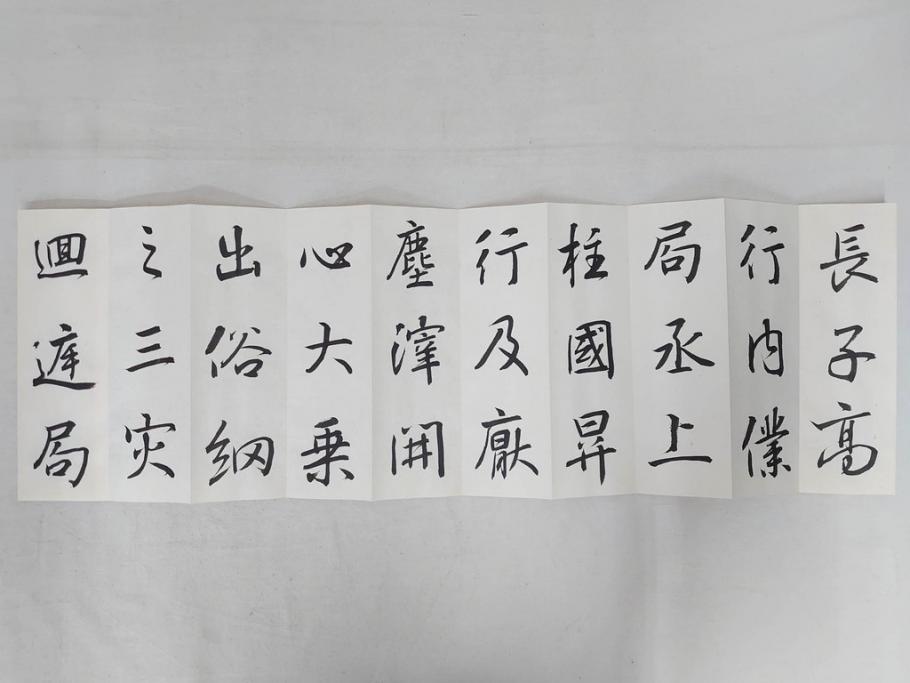 長子高
行内僕
局丞上
柱國昇
行及厥
塵滓開
心大乗
出俗綱
之三灾
迴遮局